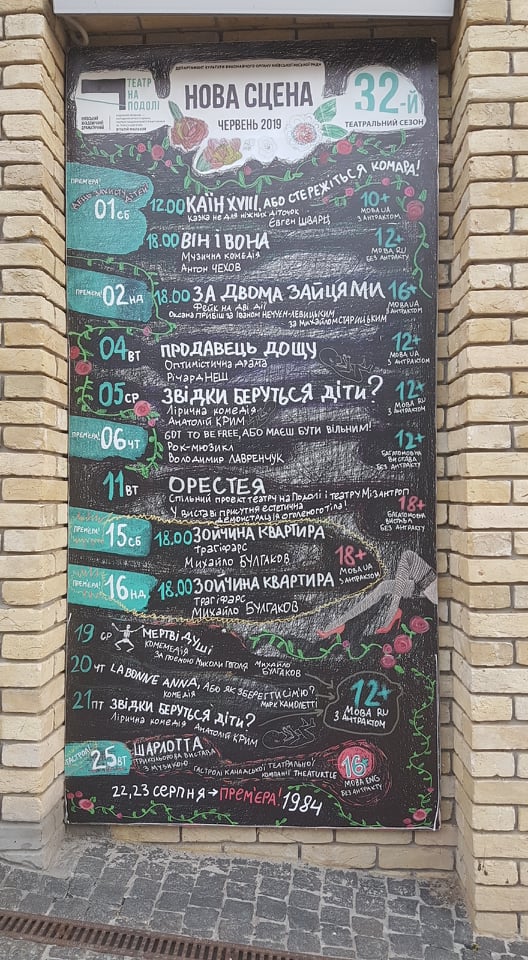 ДЕПАРТАМЕНТ КУЛЬТУРИ ВИКОНАВЧОГО ОРГАНУ КИЇВСЬКОЇ МІСЬКОЇ РАДИ
ТЕАТР
НА
ПОДОЛІ
КИЇВСЬКИЙ
АКАДЕМІЧНИЙ
ДРАМАТИЧНИЙ
НОВА СЦЕНА
ЧЕРВЕНЬ 2019
32-Й
ТЕАТРАЛЬНИЙ СЕЗОН
ПРЕМ'ЄРА!
ДЕНЬ ЗАХИСТУ ДІТЕЙ
01 СБ
12.00 КАЇН XVIII, АБО СТЕРЕЖІТЬСЯ КОМАРА!
казка не для ніжних діточок
Євген ШВАРЦ
10+
МОВА UA
З АНТРАКТОМ
18.00 ВІН І ВОНА
Музична комедія
Антон ЧЕХОВ
12+
МОВА RU
БЕЗ АНТРАКТУ
ПРЕМ'ЄРА!
02 НД
18.00 ЗА ДВОМА ЗАЙЦЯМИ
Фейк на дві дії
за Михайлом СТАРИЦЬКИМ
16+
МОВА UA
З АНТРАКТОМ
04 ВТ
ПРОДАВЕЦЬ ДОЩУ
Оптимістична драма
Річард НЕШ
12+
МОВА UA
З АНТРАКТОМ
05 СР
ЗВІДКИ БЕРУТЬСЯ ДІТИ?
Лірична комедія
Анатолій КРИМ
12+
МОВА RU
З АНТРАКТОМ
ПРЕМ'ЄРА!
06 ЧТ
GOT TO BE FREE, АБО МАЄШ БУТИ ВІЛЬНИМ!
Рок-мюзикл
Володимир ЛАВРЕНЧУК
12+
БАГАТОМОВНА
ВИСТАВА
БЕЗ АНТРАКТУ
11 ВТ
ОРЕСТЕЯ
Спільний проєкт театру на Подолі і театру Мізантроп
У виставі присутня естетична
демонстрація оголеного тіла!
18+
БАГАТОМОВНА
ВИСТАВА
БЕЗ АНТРАКТУ
ПРЕМ'ЄРА!
15 СБ
18.00 ЗОЙЧИНА КВАРТИРА
Трагіфарс
Михайло БУЛГАКОВ
18+
МОВА UA
З АНТРАКТОМ
ПРЕМ'ЄРА!
16 НД
18.00 ЗОЙЧИНА КВАРТИРА
Трагіфарс
Михайло БУЛГАКОВ
19 СР
МЕРТВІ ДУШІ
ЗА ПОЕМОЮ МИКОЛИ ГОГОЛЯ
МИХАЙЛО
БУЛГАКОВ
20 ЧТ
LA BONNE ANNA, АБО ЯК ЗБЕРЕГТИ СІМ'Ю?
КОМЕДІЯ
МАРК КАМОЛЕТТІ
12+
МОВА RU
З АНТРАКТОМ
21 ПТ
ЗВІДКИ БЕРУТЬСЯ ДІТИ?
Лірична комедія Анатолій КРИМ
ГАСТРОЛІ
25 ВТ
ШАРЛОТТА
ТРИКОЛЬОРОВА ВИСТАВА
З МУЗИКОЮ
ГАСТРОЛІ КАНАДСЬКОЇ ТЕАТРАЛЬНОЇ
КОМПАНІЇ THEATURTLE
16+
МОВА ENG
БЕЗ АНТРАКТУ
22,23 СЕРПНЯ → ПРЕМ'ЄРА! 1984